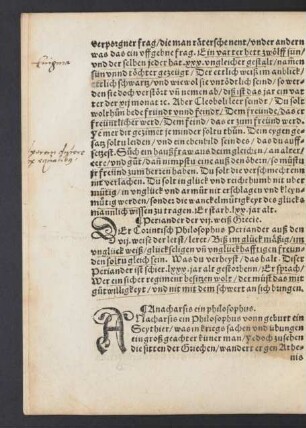 verporgner frag/die man räterschē nent/vnder andern
was das ein vffgebne frag. Ein vatter hett zwölff sün/
vnd der selben jeder hat .xxx. vngleicher gestalt/namen
sün vnnd töchter gezeügt/ Der ettlich weiß im anblick/
ettlich schwartz/ vnd wiewol sie vntödtlich seind/ so wer-
den sie doch verstört vñ nemen ab/
ter der xij monat ic. Aber Cleoboli leer seind/ Du solt
wolthün dem freünd vnnd feind/ Dem freünd/ das er
freüntlicher werd/ Dem feind/ das er zum freünd werd.
Ye mer dir gezimet ie minder solt thün. Dein eygen ge-
satz soltu leiden/ vnd ein ebenbild sein des/ das du auff-
setzest. Such ein haußfraw aus deim gleichen/ an alter
eere/ vnd güt/ dañ nimpstu eine auß den öbern/ so müstu
jr freünd zum herren haben. Du solt die verschmechten
nit verlachen. Du solt in glück vnd reichthumb nit über
mütig/ in vnglück vnd armůt nit erschlagen vnd kleyn-
mütig werden/ sonder die wanckelmütigkeyt des glücks
mannlich wissen zu tragen. Er starb .lxx. jar alt.
Periander der vij. weiß Grece.
DEr Corintisch Philosophus Periander auß den
vij. weisen der letst/ leert/ Biß im glück mäßig/ im
vnglück weiß/ glückseligen vñ vnglückhafftigen freün-
den soltu gleich sein. Was du verheyst/ das halt. Diser
Periander ist schier .lxxx. jar alt gestorben. Er sprach/
Wer ein sicher regiment besitzen wolt/ der müst das mit
gütwilligkeyt/ vnd nit mit dem schwert an sich bringen.
Anacharsis ein philosophus.
ANacharsis ein Philosophus vonn geburt ein
Scythier/ was in kriegs sachen vnd übungen
ein groß geachter küner man/ Ye doch zu sehen
die sitten der Griechen/ wandert er gen Athe-
nis